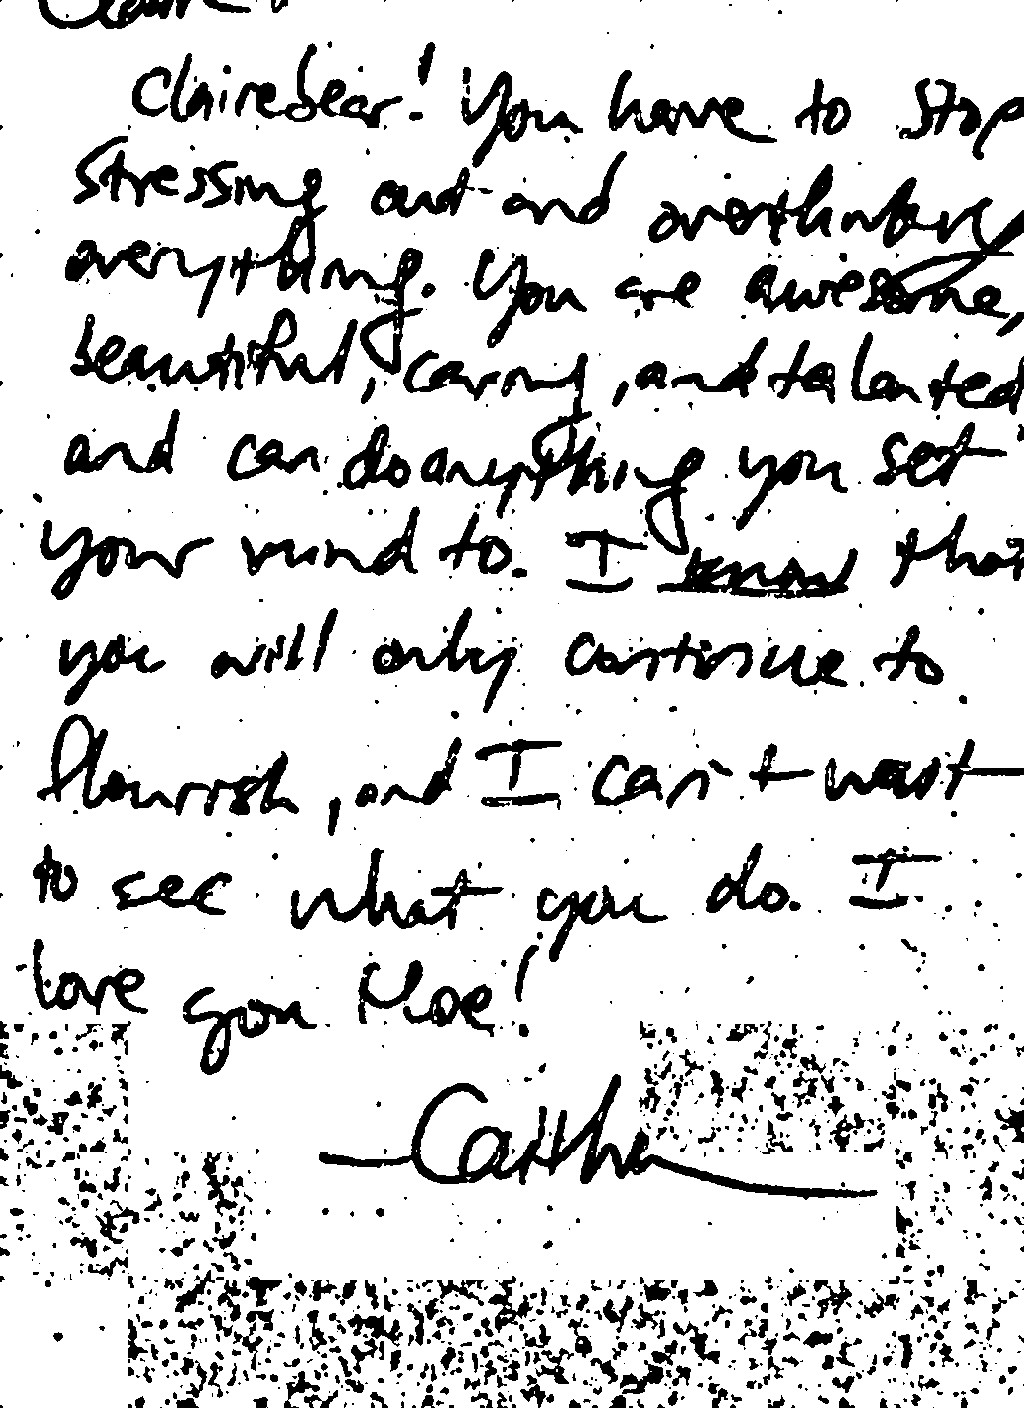 Clairebear! You have to stop
stressing out and overthinking
everything. You are awesome,
beautiful, caring, and talented
and can do anything you set
your mind to. I know that
you will only continue to
flourish, and I can't wait
to see what you do. I
love you